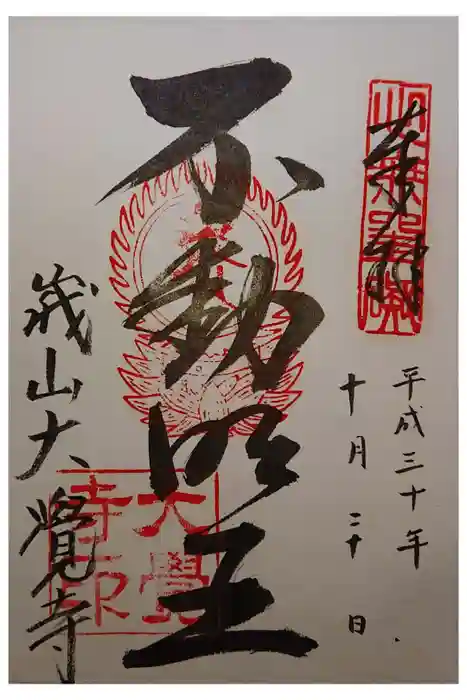 奉拝
平成三十年
十月二十日
不動明王
大覺
寺印
峨山大覺寺